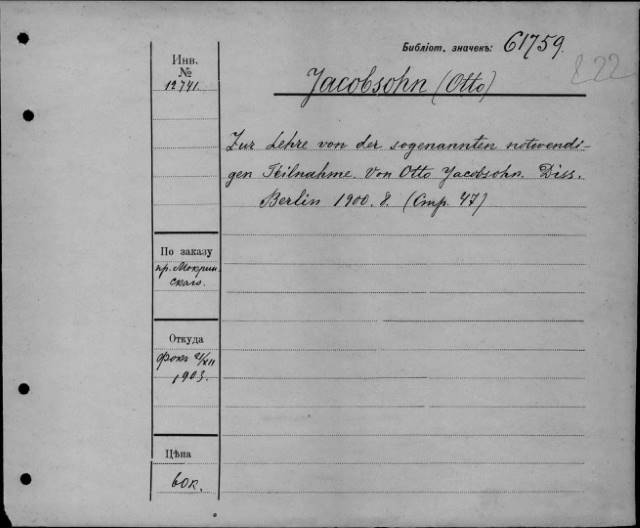 Библіот. значекъ: 61759.
Инв.
№
12741.
Jacobsohn (Otto)
Zur Lehre von der sogenannten notwendi-
gen Teilnahme. Von Otto Jacobsohn. Diss.
Berlin 1900. 8. (Стр. 47)
По заказу
пр. Мокрин-
скаго.
Откуда
Фокъ 2/XII
1903.
Цѣна
60к.